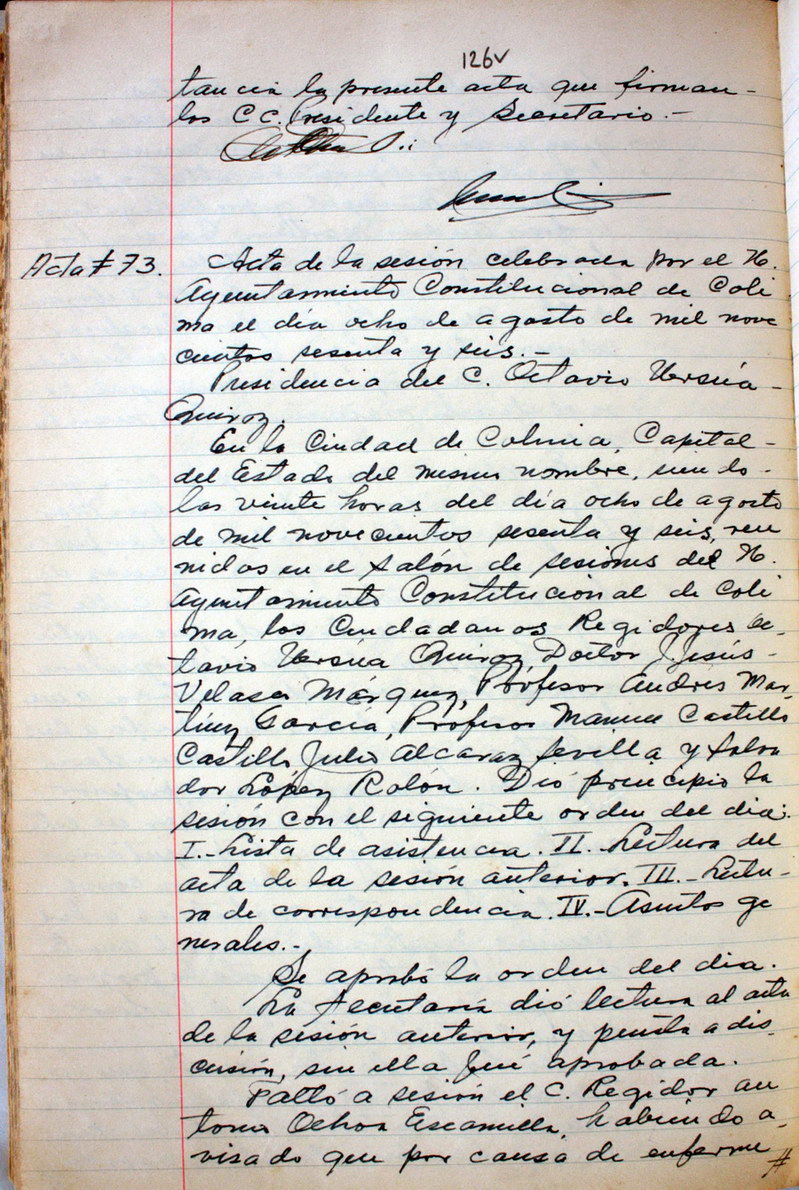 126v
tancia la presente acta que firman-
los C C. Presidente y Secretario.-
Acta # 73.
Acta de la sesión celebrada por el H.
Ayuntamiento Constitucional de Coli
ma el día ocho de agosto de mil nove
cientos sesenta y seis.-
Presidencia del C. Octavio Ursúa-
Quiroz.
En la Ciudad de Colima, Capital-
del Estado del mismo nombre, siendo-
las veinte horas del día ocho de agosto
de mil novecientos sesenta y seis, reu
nidos en el Salón de sesiones del H.
Ayuntamiento Constitucional de Coli
ma, los Ciudadanos Regidores Oc-
tavio Ursúa Quiroz, Doctor J. Jesús-
Velasco Márquez, Profesor Andrés Mar-
tínez García, Profesor Manuel Castillo
Castillo Julio Alcaraz Sevilla y Salva
dor López Rolón. Dió principio la
sesión con el siguiente orden del dia:
I.- Lista de asistencia. II.- Lectura del
acta de la sesión anterior. III.- Lectu-
ra de correspondencia. IV.- Asuntos ge
nerales.-
Se aprobó la orden del dia.
La Secretaría dió lectura al acta
de la sesión anterior, y puesta a dis-
cusión, sin ella fué aprobada.
Faltó a sesión el C. Regidor An
tonio Ochoa Escamilla, habiendo a-
visado que por causa de enferme
#